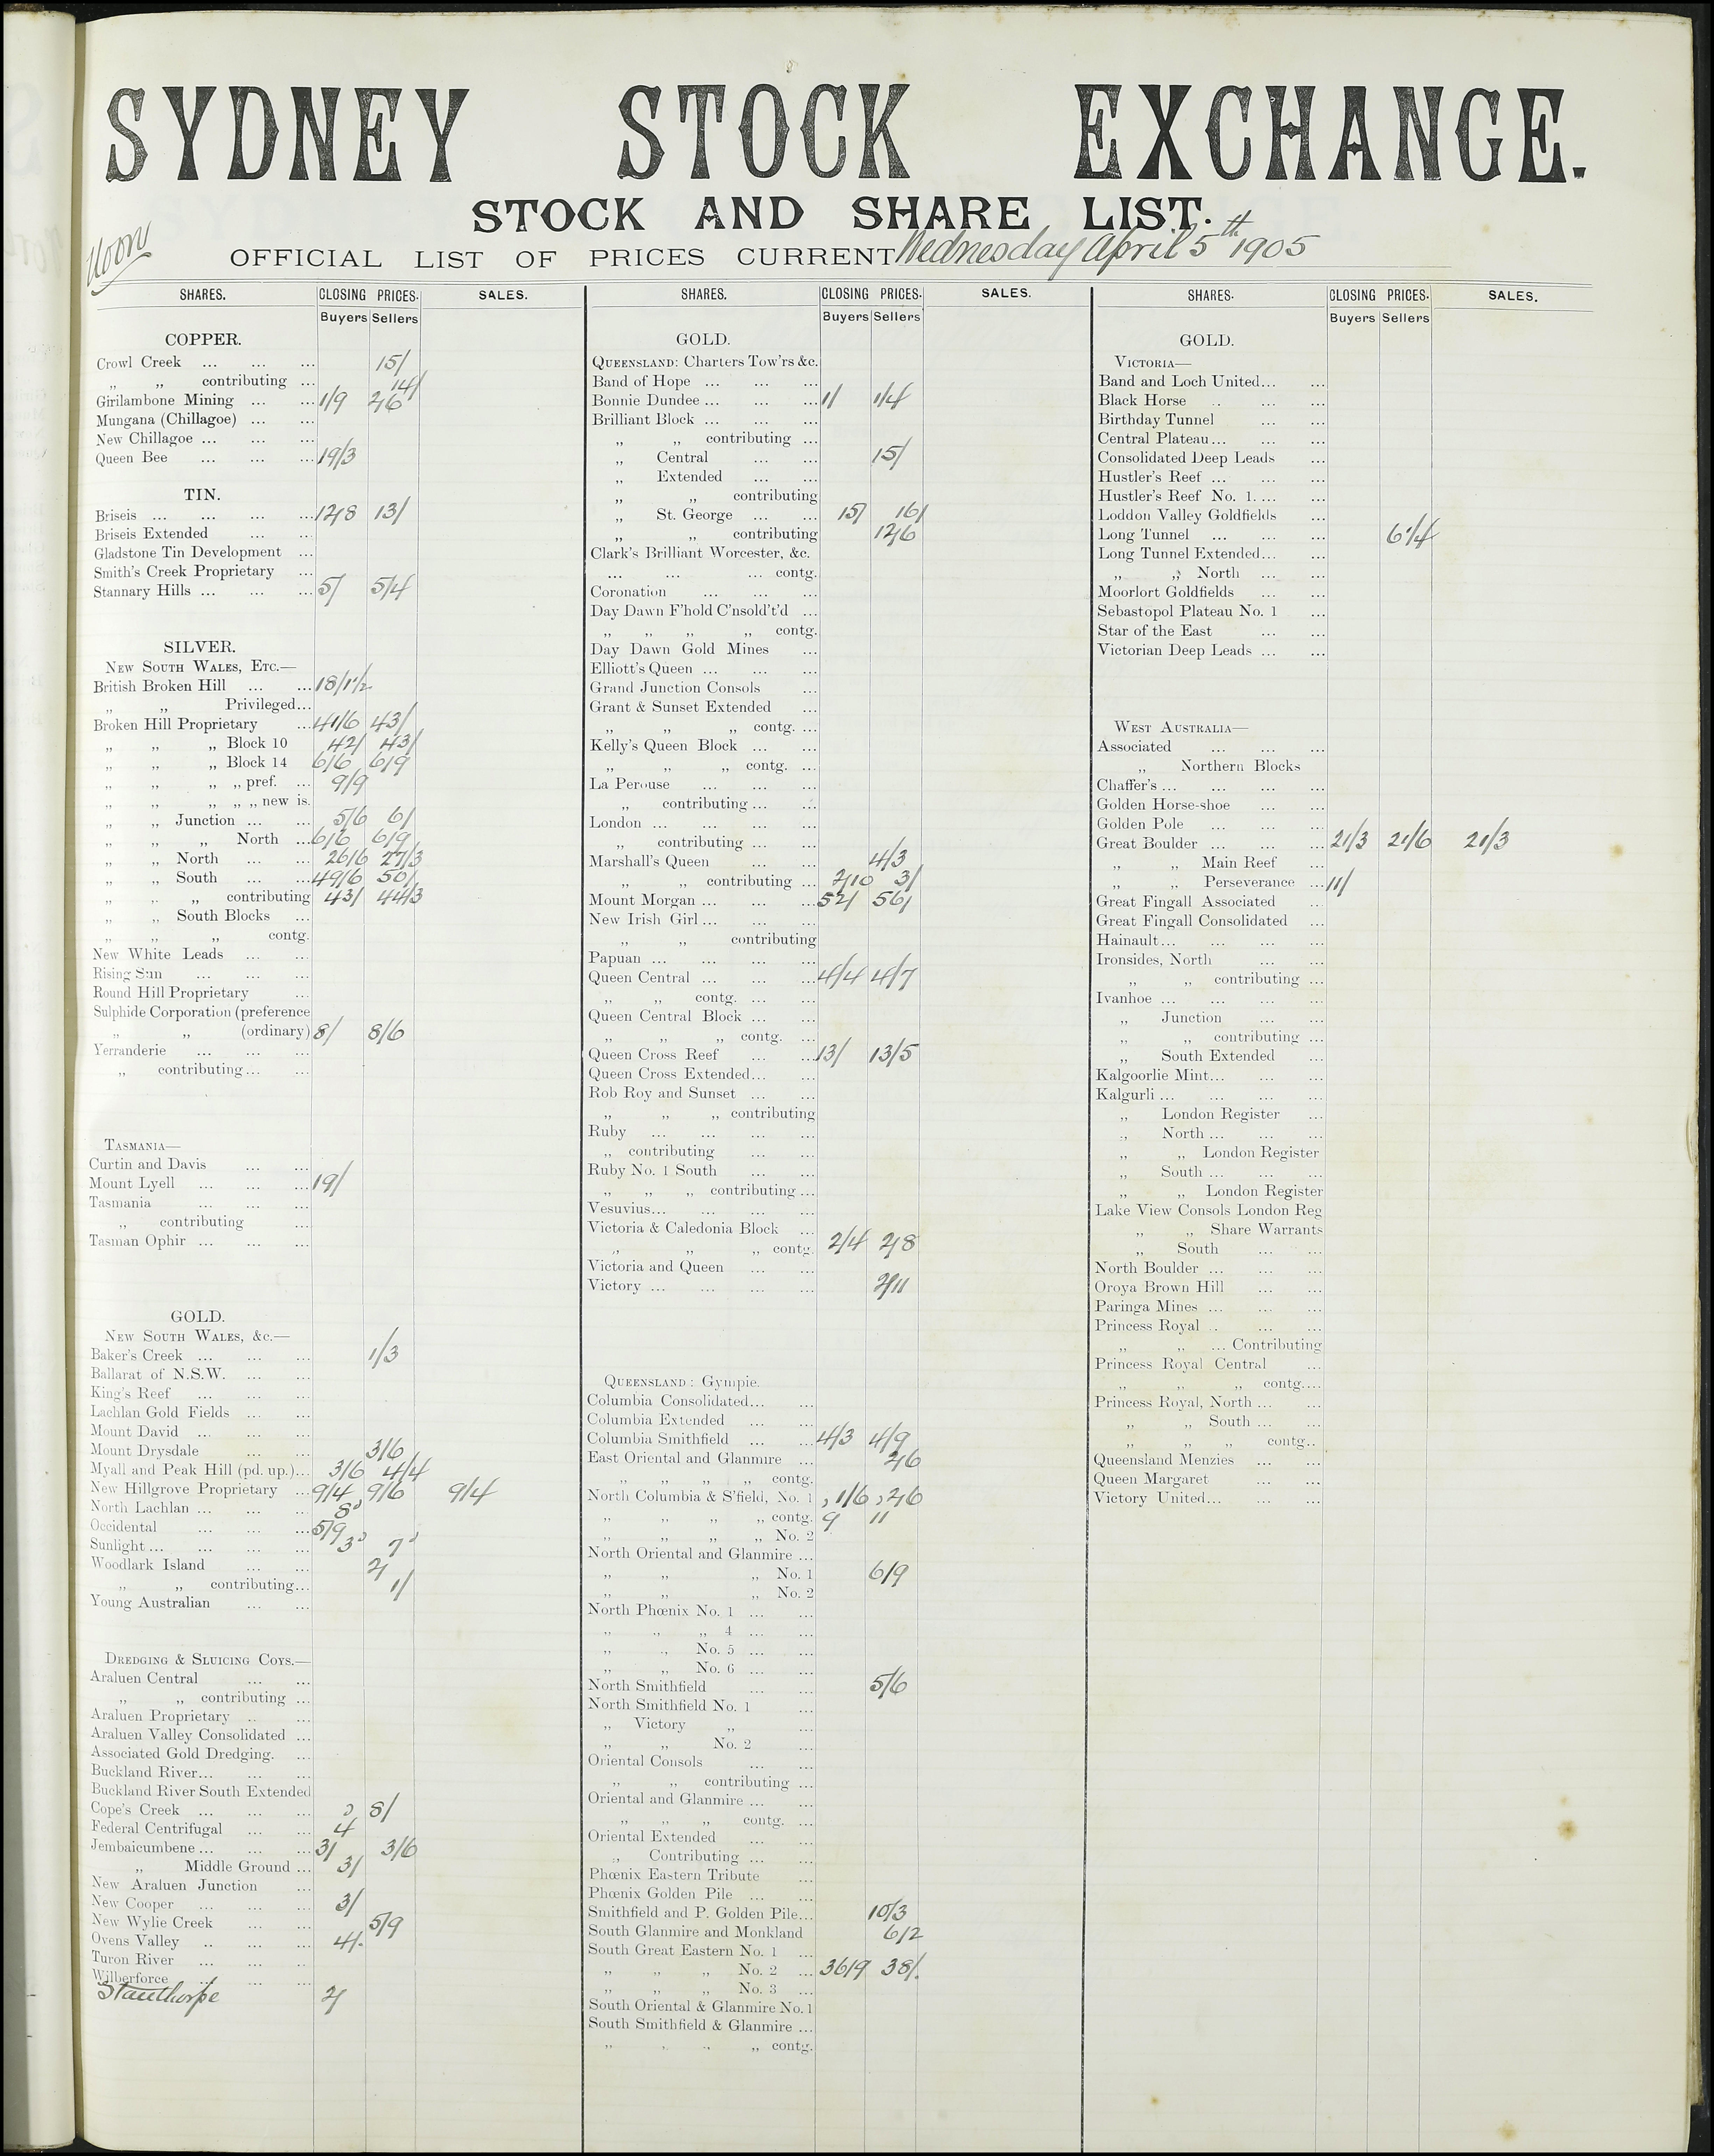 SYDNEY STOCK EXCHANGE.
STOCK AND SHARE LIST.
Noon
OFFICIAL LIST OF PRICES CURRENT Wednesday April 5th 1905
SHARES. CLOSING PRICES. SALES.
Buyers Sellers
COPPER.
Crowl Creek ... ... ... 15/
„ „ contributing ... 14/
Girilambone Mining ... ... 1/9 2/6
Mungana (Chillagoe) ... ...
New Chillagoe ... ... ...
Queen Bee ... ... ... 19/3
TIN.
Briseis ... ... ... ... 12/8 13/
Briseis Extended ... ...
Gladstone Tin Development ...
Smith's Creek Proprietary ...
Stannary Hills ... ... ... 5/ 5/4
SILVER.
NEW SOUTH WALES, ETC.—
British Broken Hill ... ... 18/1½
„ „ Privileged...
Broken Hill Proprietary ... 41/6 43/
„ „ „ Block 10 42/ 43/
„ „ „ Block 14 6/6 6/9
„ „ „ „ pref. ... 9/9
„ „ „ „ „ new is.
„ „ Junction ... ... 5/6 6/
„ „ „ North ... 6/6 6/9
„ „ North ... ... 26/6 27/3
„ „ South ... ... 49/6 50/
„ „ „ contributing 43/ 44/3
„ „ South Blocks ...
„ „ „ contg.
New White Leads ... ...
Rising Sun ... ... ...
Round Hill Proprietary ...
Sulphide Corporation (preference
„ „ (ordinary) 8/ 8/6
Yerranderie ... ... ...
„ contributing... ...
TASMANIA—
Curtin and Davis ... ...
Mount Lyell ... ... ... 19/
Tasmania ... ... ...
„ contributing ...
Tasman Ophir ... ... ...
GOLD.
NEW SOUTH WALES, &c.—
Baker's Creek ... ... ... 1/3
Ballarat of N.S.W. ... ...
King's Reef ... ... ...
Lachlan Gold Fields ... ...
Mount David ... ... ...
Mount Drysdale ... ... 3/6
Myall and Peak Hill (pd. up.)... 3/6 4/4
New Hillgrove Proprietary ... 9/4 9/6 9/4
North Lachlan ... ... ... 8d
Occidental ... ... ... 5/9
Sunlight ... ... ... ... 3d 7d
Woodlark Island ... ... 2/
„ „ contributing... 1/
Young Australian ... ...
DREDGING & SLUICING COYS.—
Araluen Central ... ...
„ „ contributing ...
Araluen Proprietary .. ...
Araluen Valley Consolidated ...
Associated Gold Dredging. ...
Buckland River... ... ...
Buckland River South Extended
Cope's Creek ... ... ... 8/
Federal Centrifugal ... ... 4
Jembaicumbene ... ... ... 3/ 3/6
„ Middle Ground ... 3/
New Araluen Junction ...
New Cooper ... ... ... 3/
New Wylie Creek ... ... 5/9
Ovens Valley .. ... ... 4/.
Turon River ... ... ..
Wilberforce ... ... ...
Stanthorpe 2/
SHARES. CLOSING PRICES. SALES.
Buyers Sellers
GOLD.
QUEENSLAND: Charters Tow'rs &c.
Band of Hope ... ... ...
Bonnie Dundee ... ... ... 1/ 1/4
Brilliant Block ... ... ...
„ „ contributing ...
„ Central ... ... 15/
„ Extended ... ...
„ „ contributing
„ St. George ... ... 15/ 16/
„ „ contributing 12/6
Clark's Brilliant Worcester, &c.
... ... ... contg.
Coronation ... ... ...
Day Dawn F'hold C'nsold't'd ...
„ „ „ „ contg.
Day Dawn Gold Mines ...
Elliott's Queen ... ... ...
Grand Junction Consols ...
Grant & Sunset Extended ...
„ „ „ contg. ...
Kelly's Queen Block ... ...
„ „ „ contg. ...
La Perouse ... ... ...
„ contributing ... ...
London ... ... ... ...
„ contributing ... ...
Marshall's Queen ... ... 4/3
„ „ contributing ... 2/10 3/
Mount Morgan ... ... ... 52/ 56/
New Irish Girl ... ... ...
„ „ contributing
Papuan ... ... ... ...
Queen Central ... ... ... 4/4 4/7
„ „ contg. ... ...
Queen Central Block ... ...
„ „ „ contg. ...
Queen Cross Reef ... ... 13/ 13/5
Queen Cross Extended... ...
Rob Roy and Sunset ... ...
„ „ „ contributing
Ruby ... ... ... ...
„ contributing ... ...
Ruby No. 1 South ... ...
„ „ „ contributing ...
Vesuvius... ... ... ...
Victoria & Caledonia Block ...
„ „ „ contg. 2/4 2/8
Victoria and Queen ... ...
Victory ... ... ... ... 2/11
QUEENSLAND: Gympie.
Columbia Consolidated... ...
Columbia Extended ... ...
Columbia Smithfield ... ... 4/3 4/9
East Oriental and Glanmire ... 2/6
„ „ „ „ contg.
North Columbia & S'field, No. 1 1/6 2/6
„ „ „ „ contg. 9 11
„ „ „ „ No. 2
North Oriental and Glanmire ...
„ „ „ No. 1 6/9
„ „ „ No. 2
North Phœnix No. 1 ... ...
„ „ „ 4 ... ...
„ „ No. 5 ... ...
„ „ No. 6 ... ...
North Smithfield ... ... 5/6
North Smithfield No. 1 ...
„ Victory „ ...
„ „ No. 2 ...
Oriental Consols ... ...
„ „ contributing ...
Oriental and Glanmire ... ...
„ „ „ contg. ...
Oriental Extended ... ...
„ Contributing ... ...
Phœnix Eastern Tribute ...
Phœnix Golden Pile ... ...
Smithfield and P. Golden Pile... 10/3
South Glanmire and Monkland 6/2
South Great Eastern No. 1 ...
„ „ „ No. 2 ... 36/9 38/.
„ „ „ No. 3 ...
South Oriental & Glanmire No. 1
South Smithfield & Glanmire ...
„ „ „ „ contg.
SHARES. CLOSING PRICES. SALES.
Buyers Sellers
GOLD.
VICTORIA—
Band and Loch United... ...
Black Horse .. ... ...
Birthday Tunnel ... ...
Central Plateau ... ... ...
Consolidated Deep Leads ...
Hustler's Reef ... ... ...
Hustler's Reef No. 1. ... ...
Loddon Valley Goldfields ...
Long Tunnel ... ... ... 6¼
Long Tunnel Extended ... ...
„ „ North ... ...
Moorlort Goldfields ... ...
Sebastopol Plateau No. 1 ...
Star of the East ... ...
Victorian Deep Leads ... ...
WEST AUSTRALIA—
Associated ... ... ...
„ Northern Blocks
Chaffer's ... ... ... ...
Golden Horse-shoe ... ...
Golden Pole ... ... ...
Great Boulder ... ... ... 21/3 21/6 21/3
„ „ Main Reef ...
„ „ Perseverance ... 11/
Great Fingall Associated ..
Great Fingall Consolidated ...
Hainault ... ... ... ...
Ironsides, North ... ...
„ „ contributing ...
Ivanhoe ... ... ... ...
„ Junction ... ...
„ „ contributing ...
„ South Extended ...
Kalgoorlie Mint... ... ...
Kalgurli ... ... ... ...
„ London Register ...
„ North ... ... ...
„ „ London Register
„ South ... ... ...
„ „ London Register
Lake View Consols London Reg
„ „ Share Warrants
„ South ... ...
North Boulder ... ... ...
Oroya Brown Hill ... ...
Paringa Mines ... ... ...
Princess Royal .. ... ...
„ „ ... Contributing
Princess Royal Central ...
„ „ „ contg....
Princess Royal, North ... ...
„ „ South ... ...
„ „ „ contg..
Queensland Menzies ... ...
Queen Margaret ... ...
Victory United... ... ...